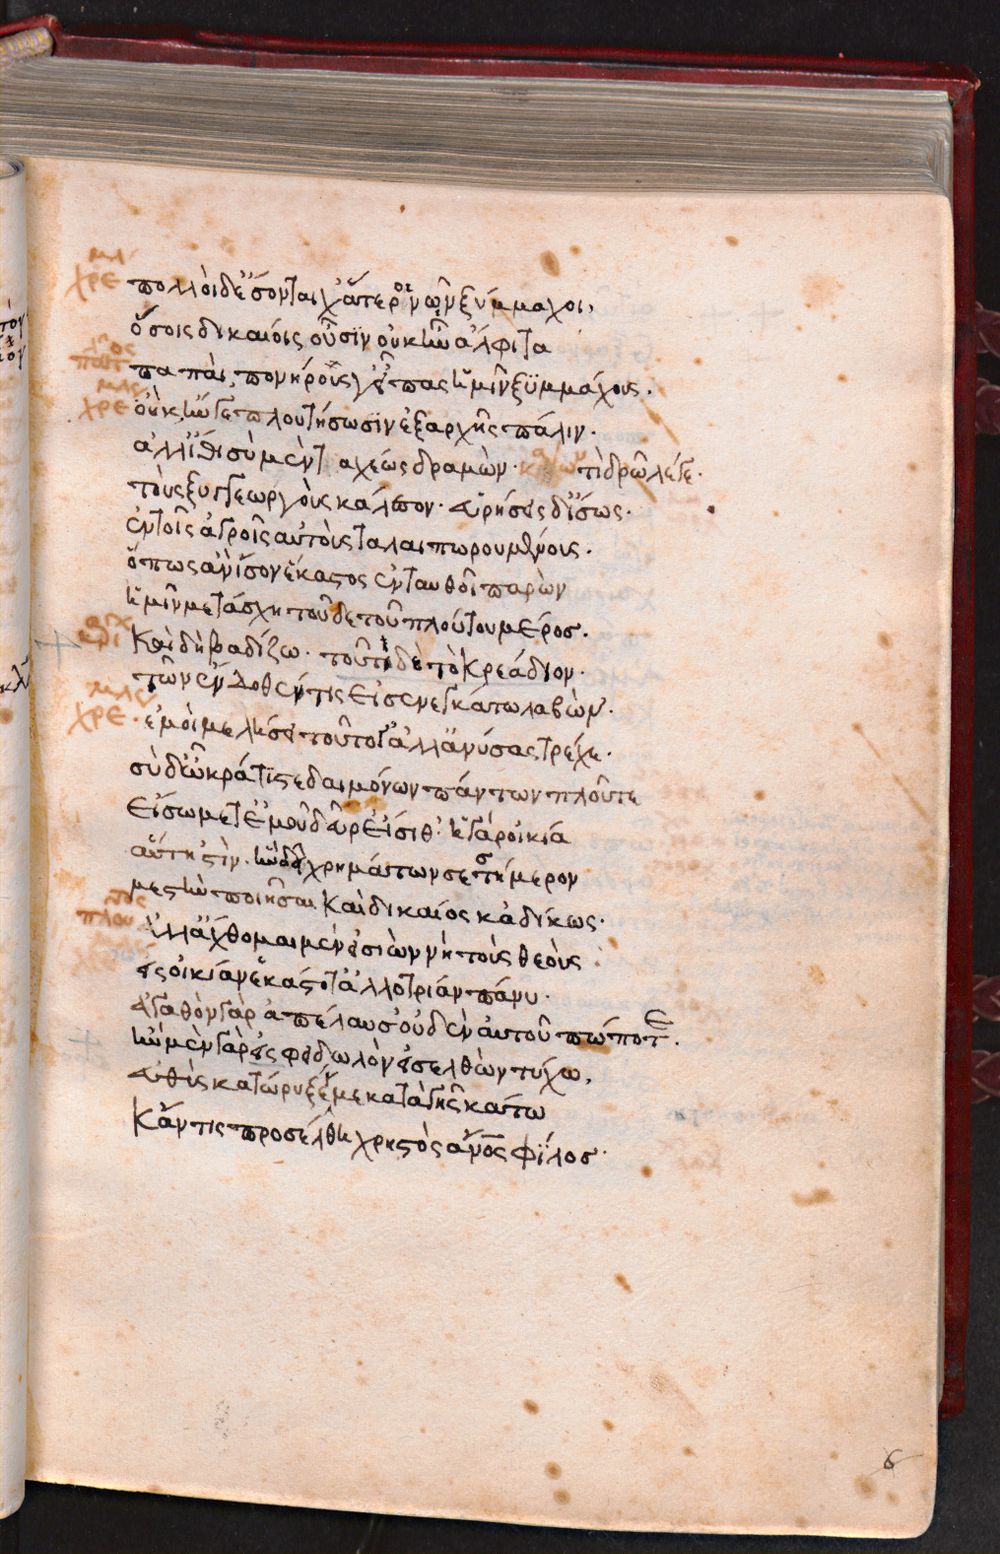 χρε πολλοὶ δ' ἔσονται χἄτεροι νῶιν ξύμμαχοι,
ὅσοις δικαίοις οὖσιν οὐκ ἦν ἄλφιτα
παπαὶ, πονηρούς γ' εἶπας ἡμῖν ξυμμάχους.
χρε οὐκ ἤν γε πλουτήσωσιν ἐξαρχῆς πάλιν.
ἀλλ' ἴθι σὺ μὲν ταχέως δραμὼν. τί δρῶ λέγε.
τοὺς ξυγγεωργοὺς κάλεσον. εὑρήσεις δ' ἴσως.
ἐν τοῖς ἀγροῖς αὐτοὺς ταλαιπωρουμένους.
ὅπως ἂν ἴσον ἕκαστος ἐνταυθοῖ παρὼν
ἡμῖν μετάσχῃ τοῦδε τοῦ πλούτου μέρος.
καὶ δὴ βαδίζω. τουτὶ δὲ τὸ κρεάδιον.
τῶν ἔνδοθέν τις εἰσενεγκάτω λαβών.
χρε. ἐμοὶ μελήσει τοῦτό γ' ἀλλ' ἀνύσας τρέχε.
σὺ δ' ὦ κράτιστε δαιμόνων πάντων πλοῦτε
εἴσω μετ' ἐμοῦ δεῦρ' εἴσιθ' ἡ γὰρ οἰκία
αὕτη 'στὶν. ἣν δεῖ χρημάτων σε τήμερον
μεστὴν ποιῆσαι καὶ δικαίως κἀδίκως.
πλου ἀλλ' ἄχθομαι μὲν εἰσιὼν νὴ τοὺς θεοὺς
εἰς οἰκίαν ἑκάστοτ' ἀλλοτρίαν πάνυ.
ἀγαθὸν γὰρ ἀπέλαυσ' οὐδὲν αὐτοῦ πώποτε.
ἢν μὲν γὰρ εἰς φειδωλὸν εἰσελθὼν τύχω,
εὐθὺς κατώρυξέν με κατὰ γῆς κάτω
κἄν τις προσέλθῃ χρηστὸς ἄνος φίλος.
6